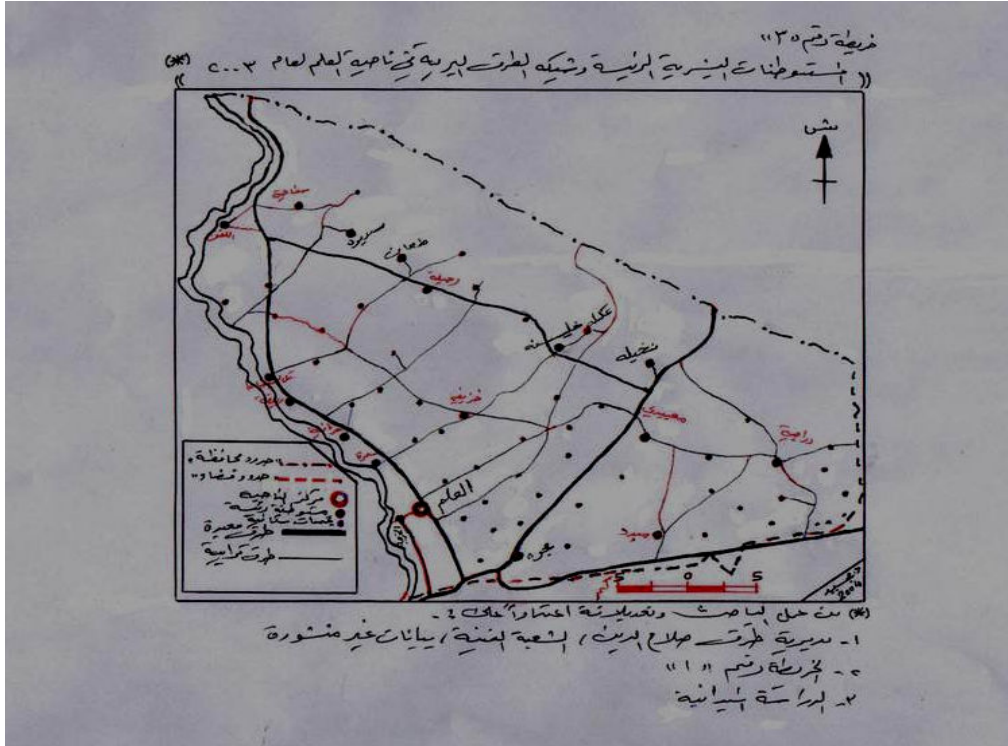 خريطة رقم "٣"
(( المستوطنات البشرية الرئيسة وشبكة الطرق البرية في ناحية العلم لعام ٢٠٠٣ ))
(*)
ش
سفاحية
سديرة
طعان
رحيلة
نخيله
خزيفي
معيبدي
دراجية
سمرة
العلم
مبرد
عجره
حدود محافظة
حدود قضاء
مركز الناحية
مستوطنة رئيسة
تجمعات سكانية
طرق معبدة
طرق ترابية
5 0 5
كم
2004
(*) من عمل الباحث وتعديلاته اعتماداً على :-
١- مديرية طرق صلاح الدين، الشعبة الفنية، بيانات غير منشورة
٢- الخريطة رقم "١"
٣- الدراسة الميدانية